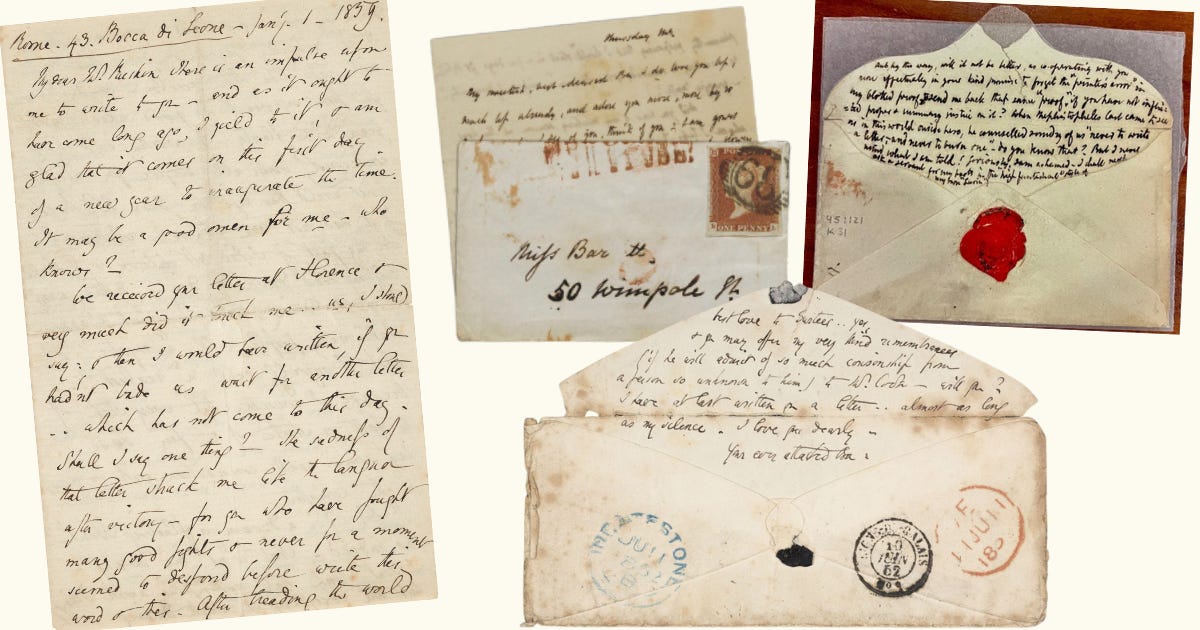 Rome. 43. Bocca di Leone - Jany. 1 - 1859.
My dear Mr. Ruskin There is an impulse upon
me to write to you - and as it ought to
have come long ago, I yield to it, & am
glad that it comes on this first day
of a new year to inaugurate the time.
It may be a good omen for me - who
knows?
We received your letter at Florence &
very much did it touch me .. us, I should
say: & then I would have written, if you
hadn't bade us wait for another letter
.. which has not come to this day.
Shall I say one thing? The sadness of
that letter struck me like the languor
after victory - for you who have fought
many good fights & never for a moment
seemed to despond before, write this
word & this. After treading the world
Thursday
My sweetest, best, dearest Ba I do love you
much already, and adore you more, more by
of you, think of you - I am yours
ONE PENNY
Miss Barrett
50 Wimpole St.
And by the way, will it not be better, as co-operating with you
more effectually in your kind promise to forget the "printer's error" in
my blotted proof, to send me back that same "proof," if you have not inflic-
ted proper & summary justice on it? When Mephistopheles last came to see
us in this world outside here, he counselled sundry of us "never to write
a letter, - and never to burn one" - do you know that? But I never
mind what I am told! Seriously, I am ashamed - I shall next
ask a servant for my boots in the "high fantastical" style of
my own Luria.
451121
K31
best love to Sisters .. yes,
& you may offer my very kind remembrances
(if he will admit of so much consonship from
a person so unknown to him) to Mr. Cook - will you?
I have at last written you a letter .. almost as long
as my silence. I love you dearly -
Your ever attached Ba -
STONE
JU 11
CALAIS
10
JUIN
52
11 JU 11
185